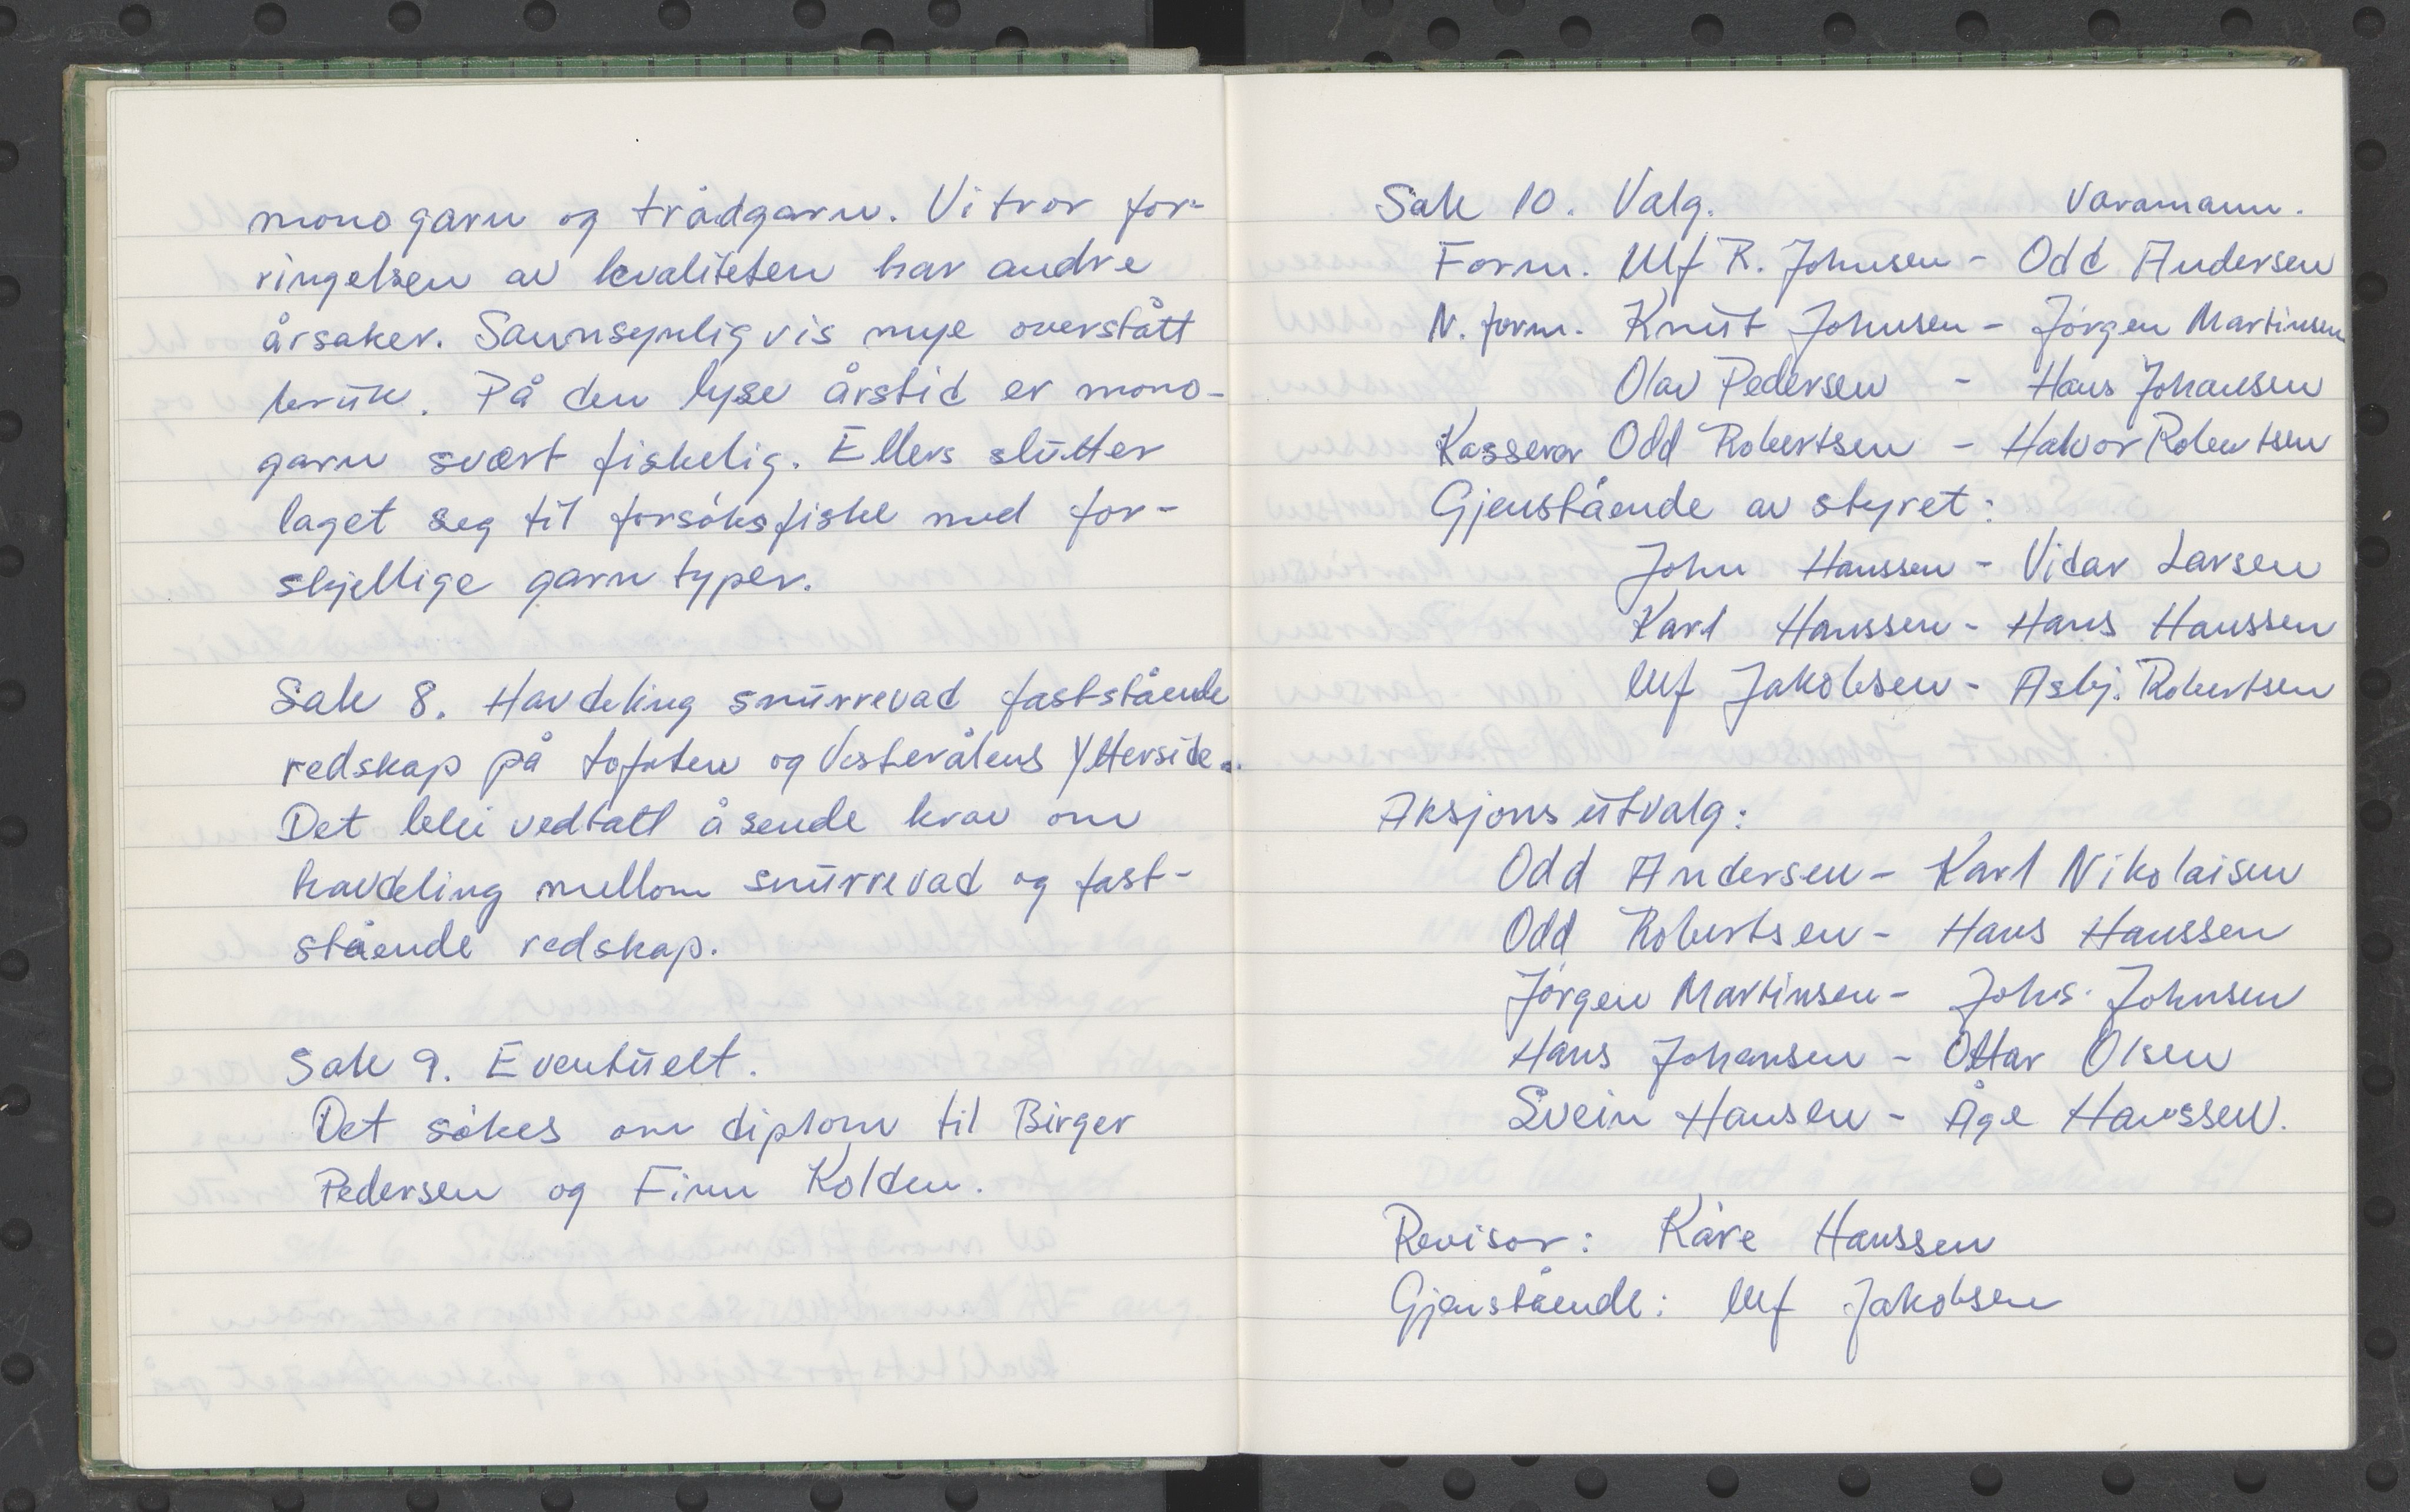 mono garn og trådgarn. Vi tror for-
ringelsen av kvaliteten har andre
årsaker. Sannsynlig vis mye overstått
bruk. På den lyse årstid er mono-
garn svært fiskelig. Ellers slutter
laget seg til forsøksfiske med for-
skjellige garn typer.
Sak 8. Havdeling snurrevad faststående
redskap på Lofoten og Vesterålens Ytterside.
Det blei vedtatt å sende krav om
havdeling mellom snurrevad og fast-
stående redskap.
Sak 9. Eventuelt.
Det søkes om diplom til Birger
Pedersen og Finn Kolden.
Sak 10. Valg. Varamann.
Form. Ulf R. Johnsen - Odd Andersen
N. form. Knut Johnsen - Jørgen Martinsen
Olav Pedersen - Hans Johansen
Kasserer Odd Robertsen - Halvor Robertsen
Gjenstående av styret:
John Hanssen - Vidar Larsen
Karl Hanssen - Hans Hanssen
Ulf Jakobsen - Asbj. Robertsen
Aksjons utvalg:
Odd Andersen - Karl Nikolaisen
Odd Robertsen - Hans Hanssen
Jørgen Martinsen - Johs. Johnsen
Hans Johansen - Ottar Olsen
Svein Hansen - Åge Hanssen.
Revisor: Kåre Hanssen
Gjenstående: Ulf Jakobsen